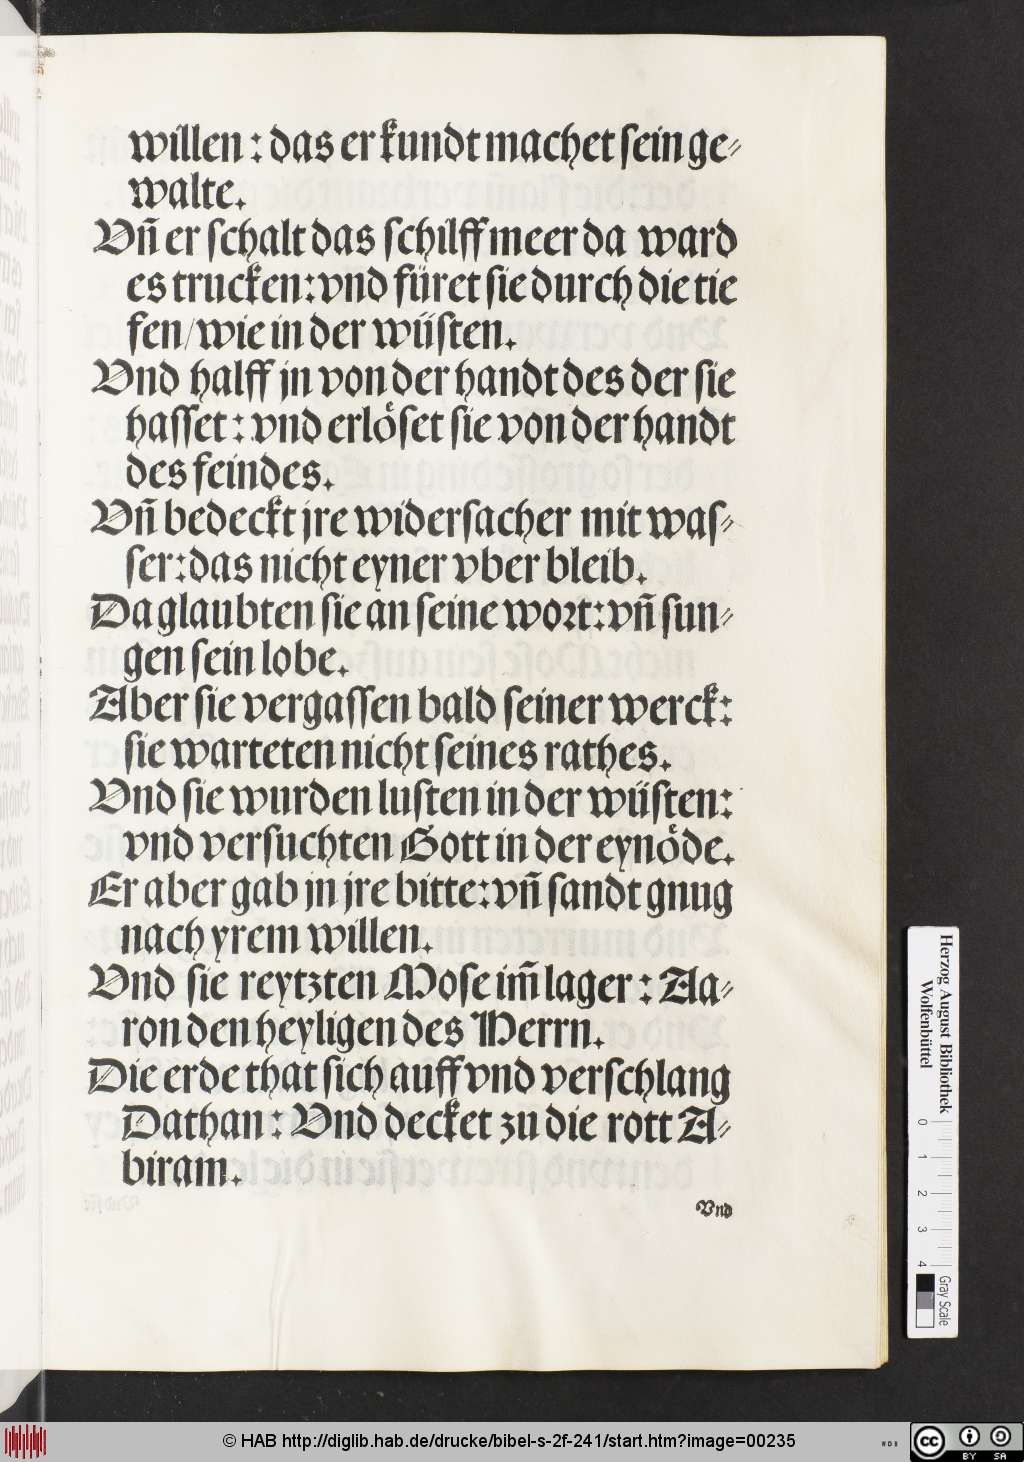 willen : das er kundt machet sein ge⸗
walte.
Vñ er schalt das schilff meer da ward
es trucken: vnd füret sie durch die tie
fen/wie in der wüsten.
Vnd halff jn von der handt des der sie
hasset : vnd erlöset sie von der handt
des feindes.
Vñ bedeckt jre widersacher mit was⸗
ser: das nicht eyner vber bleib.
Da glaubten sie an seine wort: vñ sun⸗
gen sein lobe.
Aber sie vergassen bald seiner werck:
sie warteten nicht seines rathes.
Vnd sie wurden lusten in der wüsten:
vnd versuchten Gott in der eynöde.
Er aber gab jn jre bitte: vñ sandt gnug
nach yrem willen.
Vnd sie reytzten Mose im̃ lager : Aa⸗
ron den heyligen des Herrn.
Die erde that sich auff vnd verschlang
Dathan : Vnd decket zu die rott A⸗
biram.
Vnd
Herzog August Bibliothek
Wolfenbüttel
0 1 2 3 4
Gray Scale
© HAB http://diglib.hab.de/drucke/bibel-s-2f-241/start.htm?image=00235
cc BY SA